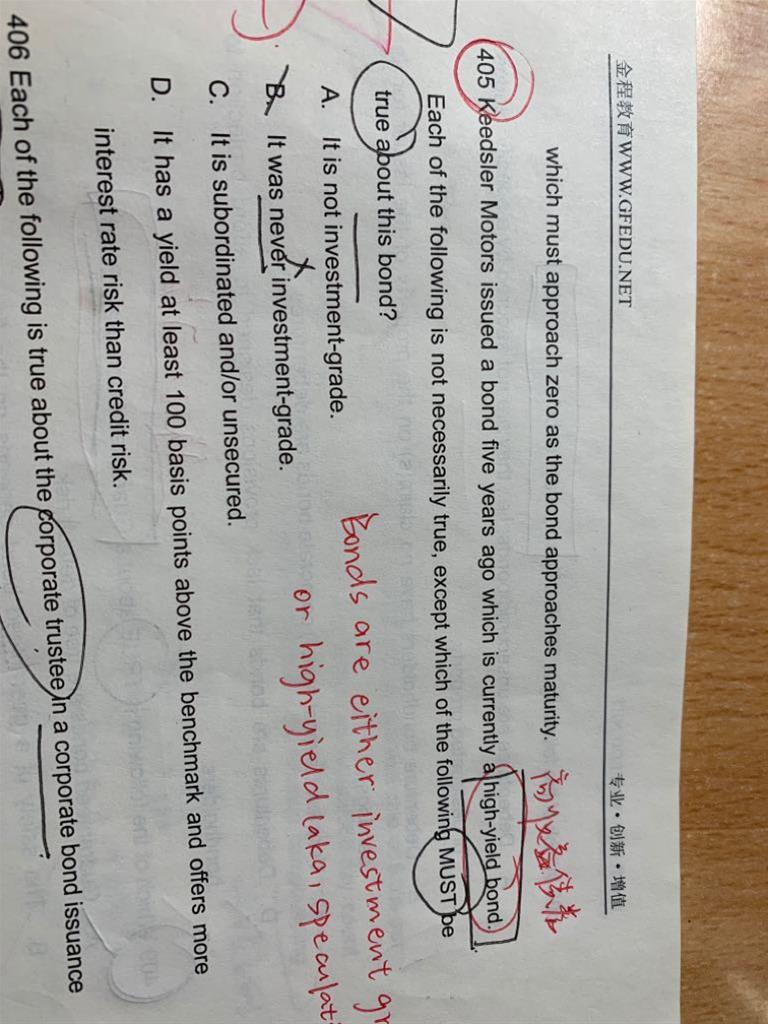 金程教育 WWW.GFEDU.NET
专业·创新·增值
which must approach zero as the bond approaches maturity.
高收益债券
405 Keedsler Motors issued a bond five years ago which is currently a high-yield bond.
Each of the following is not necessarily true, except which of the following MUST be
true about this bond?
A. It is not investment-grade.
B. It was never investment-grade.
C. It is subordinated and/or unsecured.
D. It has a yield at least 100 basis points above the benchmark and offers more
interest rate risk than credit risk.
Bonds are either investment gr
or high-yield (aka, speculat
406 Each of the following is true about the corporate trustee in a corporate bond issuance